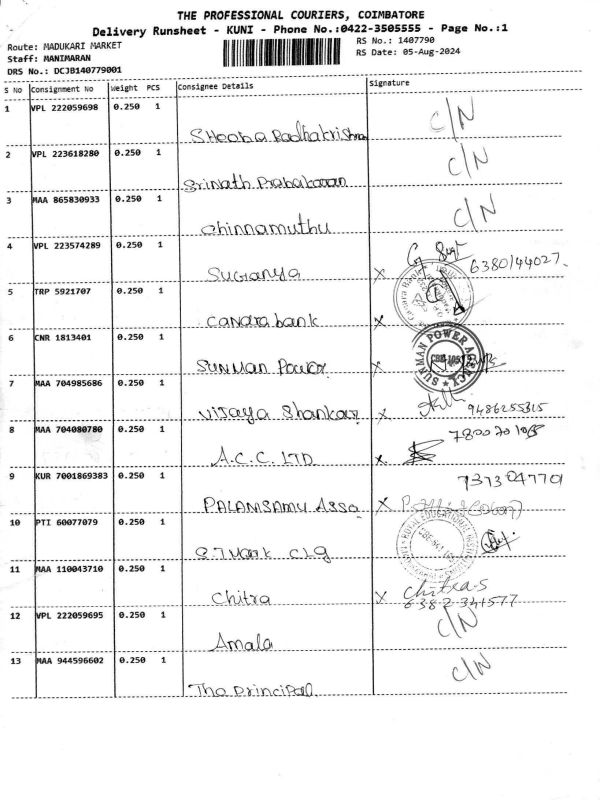 THE PROFESSIONAL COURIERS, COIMBATORE
Delivery Runsheet - KUNI - Phone No.:0422-3505555 - Page No.:1
Route: MADUKARI MARKET RS No.: 1407790
Staff: MANIMARAN RS Date: 05-Aug-2024
DRS No.: DCJB140779001
S No Consignment No Weight PCS Consignee Details Signature
1 VPL 222059698 0.250 1 C/N
Sheeba Radhakrishnan
2 VPL 223618280 0.250 1 C/N
Srinath Prabakaran
3 MAA 865830933 0.250 1 C/N
Chinnamuthu
4 VPL 223574289 0.250 1
Suganya X 6380144027
5 TRP 5921707 0.250 1 Canara Bank
Canara bank X
6 CNR 1813401 0.250 1 SUN MAN POWER AGENCY
SUNMAN Power X
7 MAA 704985686 0.250 1
Vijaya Shankar X 9486255315
8 MAA 704080780 0.250 1
A.C.C. LTD X
9 KUR 7001869383 0.250 1 737304770
PALANISAMY Asso X
10 PTI 60077079 0.250 1 ROYAL EDUCATIONAL
S.T Mark Clg
11 MAA 110043710 0.250 1 Chitra-S
Chitra X 6382341577
12 VPL 222059695 0.250 1 C/N
Amala
13 MAA 944596602 0.250 1 C/N
The principal